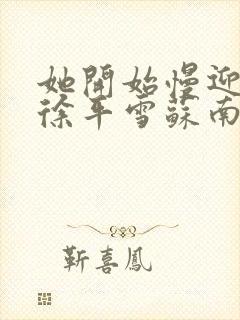 她開始慢迎
徐平雪蘇南
靳喜鳳